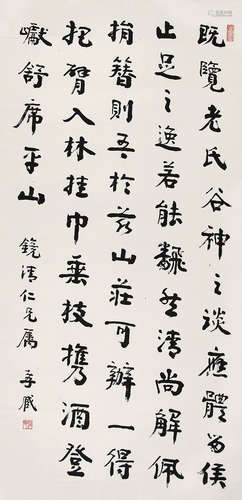 既覽老氏谷神之談應體留侯
止足之逸若能飜然清尚解佩
捐簪則吾於茲山莊可辦一得
把臂入林挂巾垂枝携酒登
巘舒席平山
鏡清仁兄屬 孝臧